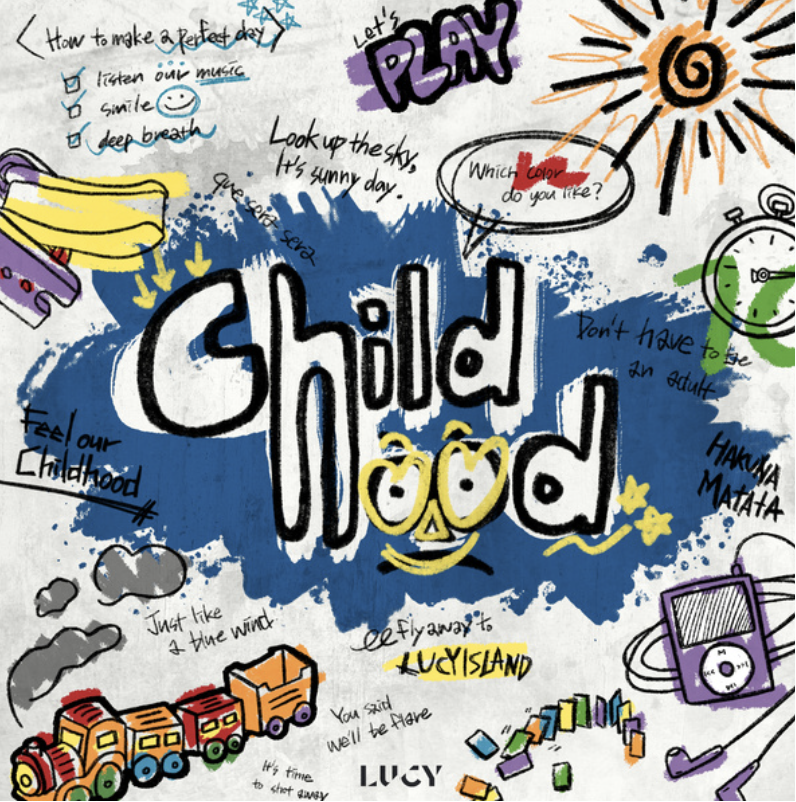 How to make a perfect day
listen our music
smile
deep breath
Let's
PLAY
Look up the sky,
It's sunny day.
que sera sera
Which color
do you like?
10
Child
Hood
Don't have to be
an adult
Feel our
Childhood
HAKUNA
MATATA
M
Just like
a blue wind
fly away to
LUCYISLAND
You said
we'll be flare
It's time
to shot away
LUCY